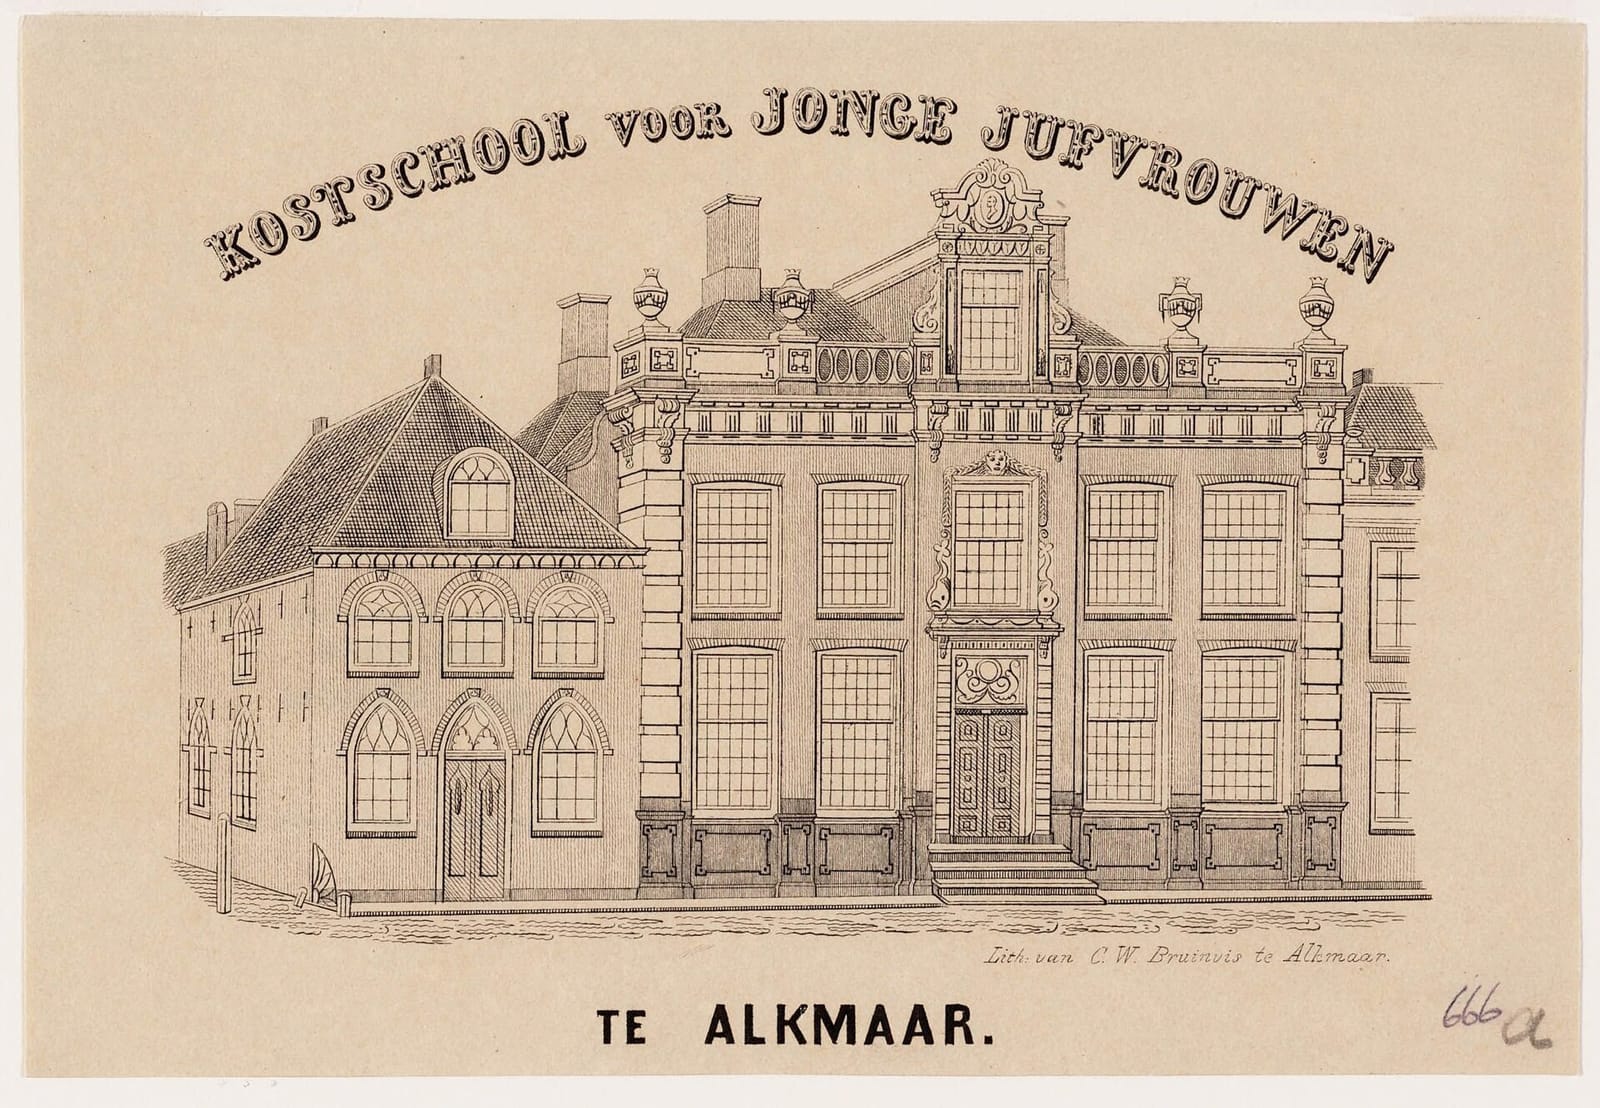 KOSTSCHOOL VOOR JONGE JUFVROUWEN
Lith: van C. W. Bruinvis te Alkmaar.
TE ALKMAAR.
666 a